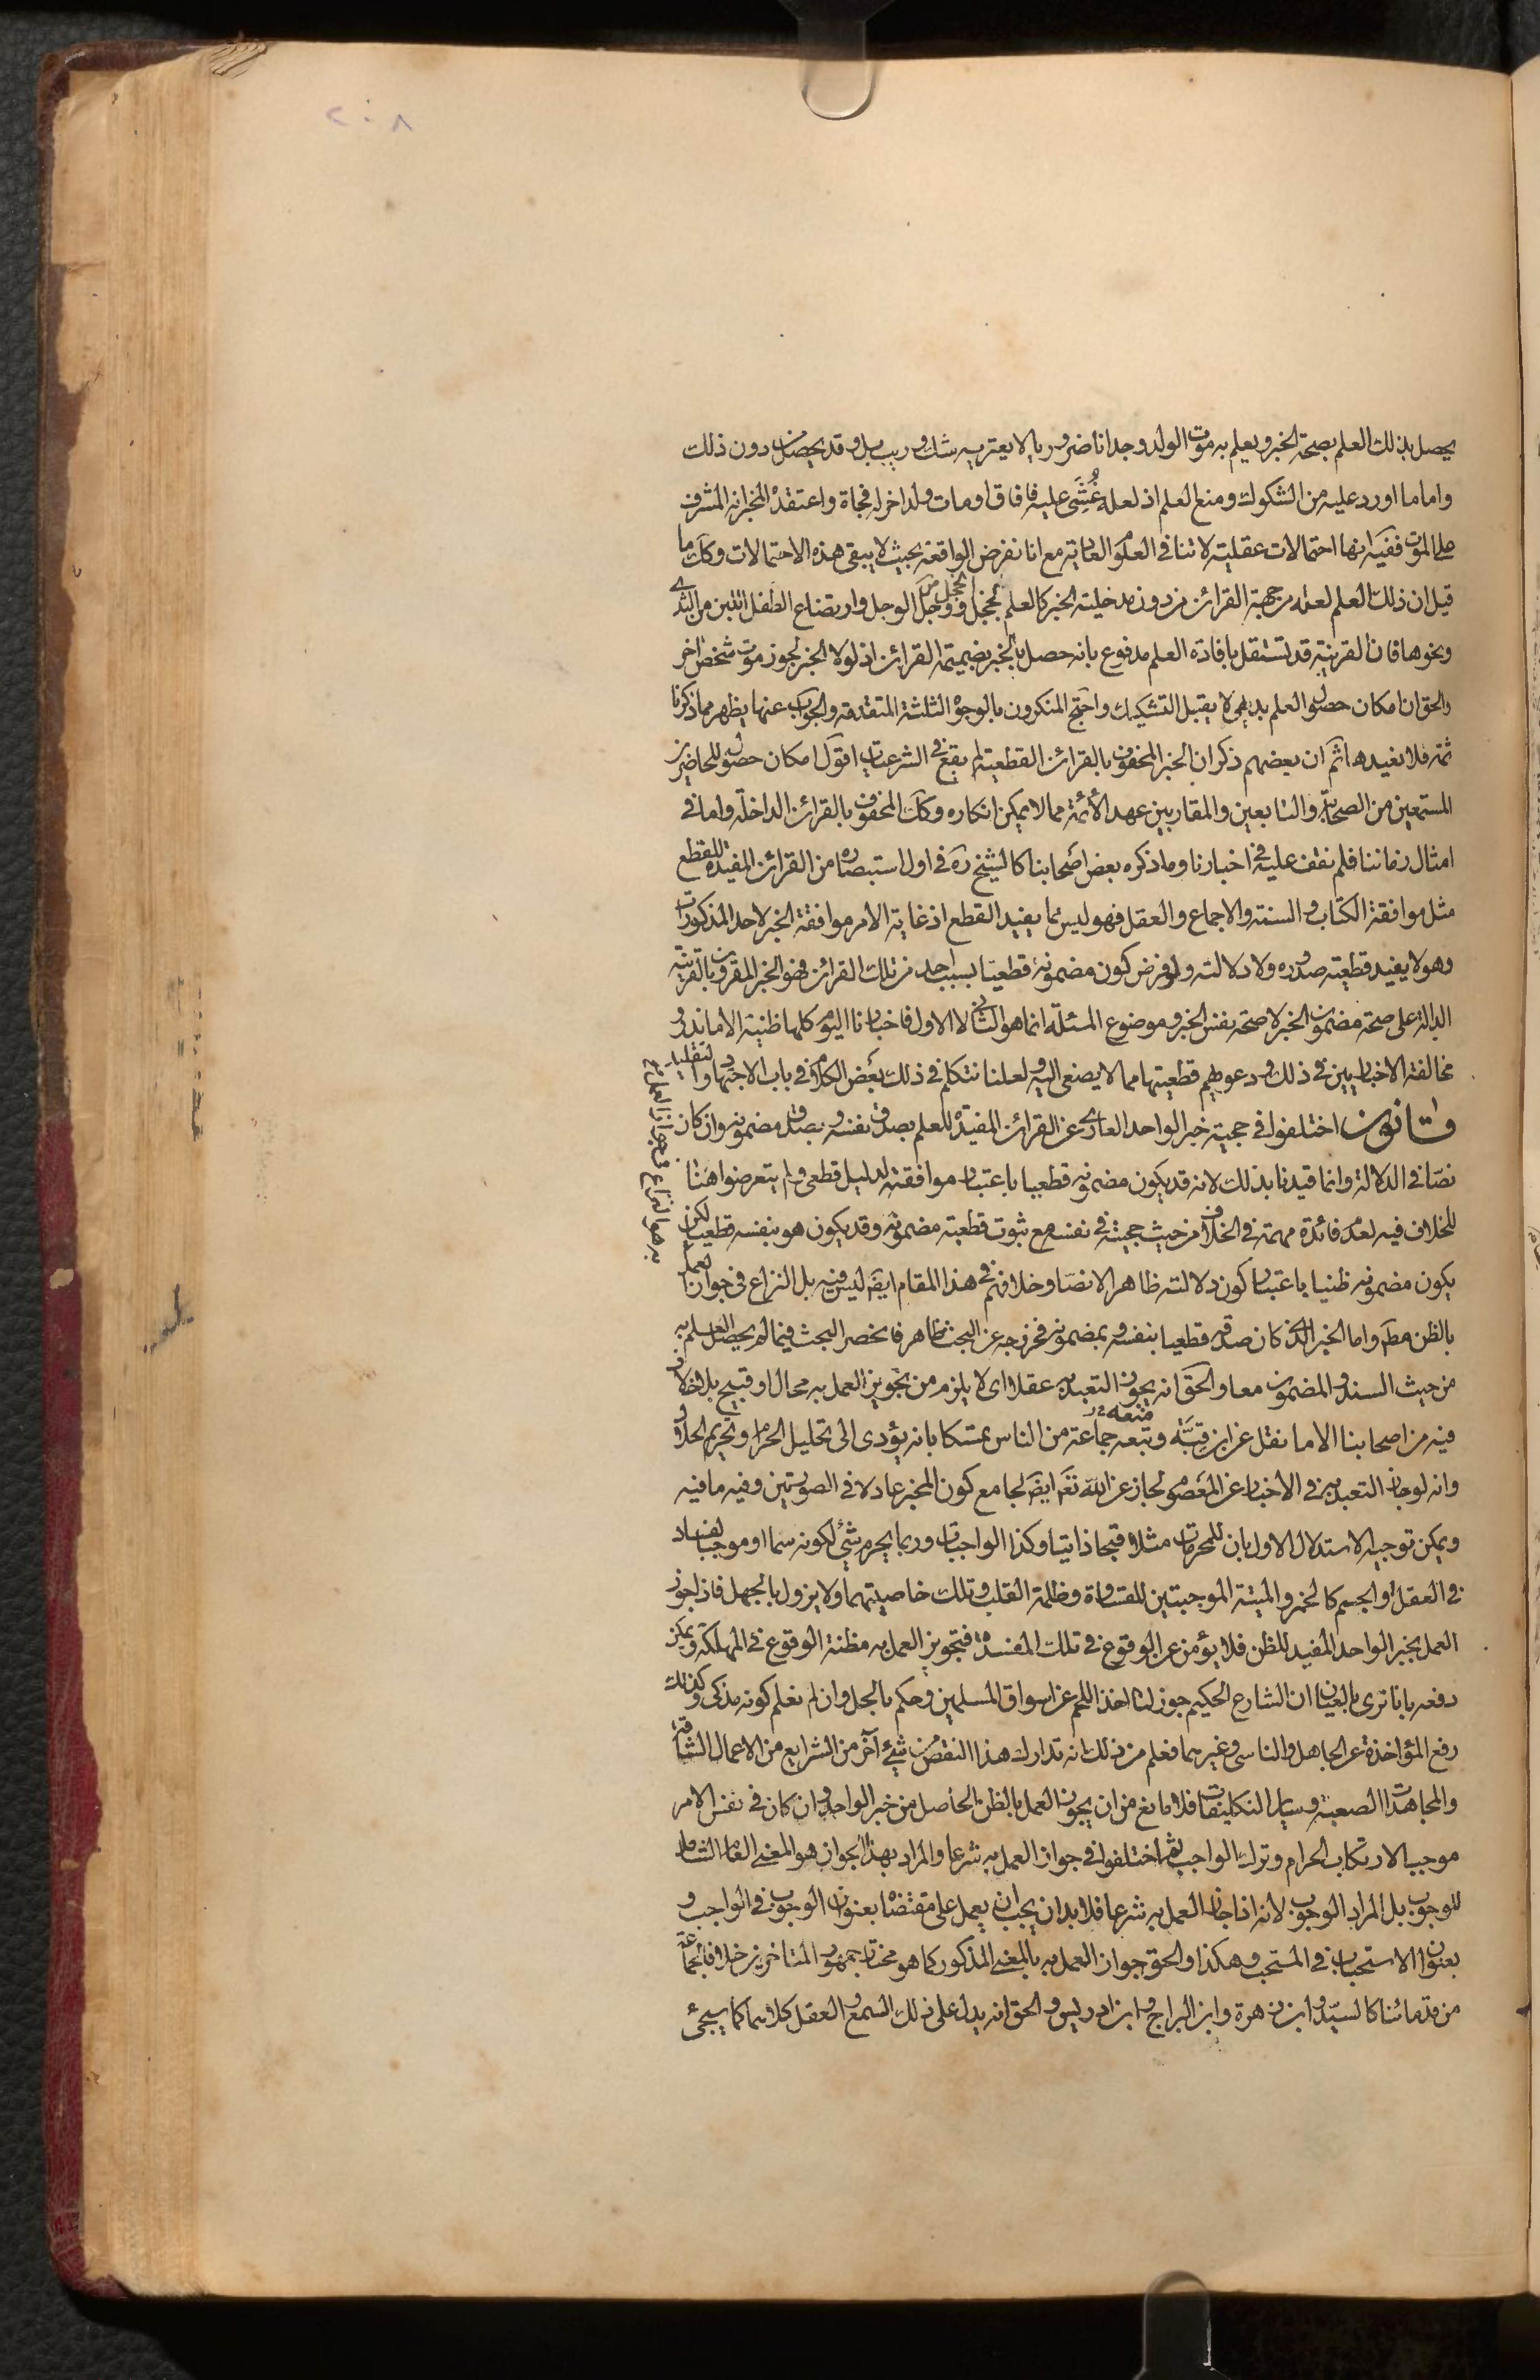 ٢٠٨
يحصل بذلك العلم بصحة الخبر ويعلم به موت الولد وجدانا ضروريا لا يعتريه شك وريب بل وقد يحصل من دون ذلك
واما ما اورد عليه من الشكوك ومنع العلم اذ لعله غُشِّى عليه فافاق او مات ولد اخر له فجاة واعتقد المخبر انه المشرف
على الموت ففيه انها احتمالات عقلية لا تنافى العلوم العادية مع انا نفرض الواقعة بحيث لا يبقى هذه الاحتمالات وكك ما
قيل ان ذلك العلم لعله من جهة القرائن من دون مدخلية الخبر كالعلم بخجل الخجل ووجل الوجل وارتضاع الطفل اللبن من الثدى
ونحوها فان القرينة قد تستقل بافادة العلم مدفوع بانه حصل بالخبر بضميمة القرائن اذ لولا الخبر لجوز موت شخص اخر
والحق ان امكان حصول العلم بديهى لا يقبل التشكيك واحتج المنكرون بالوجوه الثلثة المتقدمة والجواب عنها يظهر مما ذكرنا
ثمة فلا نعيدها ثم ان بعضهم ذكر ان الخبر المحفوف بالقرائن القطعية لم يقع فى الشرعيات اقول امكان حصوله للحاضرين
المستمعين من الصحابة والتابعين والمقاربين عهد الأئمة مما لا يمكن انكاره وكك المحفوف بالقرائن الداخلة واما فى
امثال زماننا فلم نقف عليه فى اخبارنا وما ذكره بعض اصحابنا كالشيخ ره فى اول استبصاره من القرائن المفيدة للقطع
مثل موافقة الكتاب والسنة والاجماع والعقل فهو ليس مما يفيد القطع اذ غاية الامر موافقة الخبر لاحد المذكورات
وهو لا يفيد قطعية صدوره ولا دلالته ولو فرض كون مضمونه قطعيا بسبب احد من تلك القرائن فهو الخبر المقرون بالقرينة
الدالة على صحة مضمون الخبر لا صحة نفس الخبر وموضوع المسئلة انما هو الثانى لا الاول فاخبارنا اليوم كلها ظنية الا ما ندر و
مخالفة الاخباريين فى ذلك ودعويهم قطعيتها مما لا يصغى اليه ولعلنا نتكلم فى ذلك بعض الكلام فى باب الاجتهاد والتقليد
قانون اختلفوا فى حجية خبر الواحد العارى عن القرائن المفيدة للعلم بصدق نفسه وبصدق مضمونه وان كان
نصا فى الدلالة وانما قيدنا بذلك لانه قد يكون مضمونه قطعيا باعتبار موافقته لدليل قطعى ولم يتعرضوا هنا
للخلاف فيه لعدم فائدة مهمة فى الخلاف من حيث حجيته فى نفسه مع ثبوت قطعية مضمونه وقد يكون هو بنفسه قطعيا لكن
يكون مضمونه ظنيا باعتبار كون دلالته ظاهرا لا نصا وخلافهم فى هذا المقام ايضا ليس فيه بل النزاع فى جواز العمل
بالظن مط واما الخبر الذى كان صدقه قطعيا بنفسه وبمضمونه فخروجه عن البحث ظاهر فانحصر البحث فيما لم يحصل العلم به
من حيث السند والمضمون معا والحق انه يجوز التعبد به عقلا اى لا يلزم من تجويز العمل به محال او قبيح بل لا خلاف
فيه من اصحابنا الا ما نقل عن ابن قِبَّه وتبعه جماعة من الناس تمسكا بانه يؤدى الى تحليل الحرام وتحريم الحلال
وانه لو جاز التعبد به فى الاخبار عن المعصوم لجاز عن الله تع ايضا لجامع كون المخبر عادلا فى الصورتين وفيه ما فيه
ويمكن توجيه الاستدلال الاول بان للمحرمات مثلا قبحا ذاتيا وكذا الواجبات وربما يحرم شئ لكونه سما او موجبا لفساد
فى العقل او الجسم كالخمر والميتة الموجبتين للقساوة وظلمة القلب وتلك خاصيتهما ولا يزول بالجهل فاذا جوز
العمل بخبر الواحد المفيد للظن فلا يؤمن عن الوقوع فى تلك المفسدة فتجويز العمل به مظنة الوقوع فى المهلكة ويمكن
دفعه بانا نرى بالعيان ان الشارع الحكيم جوز لنا اخذ اللحم عن اسواق المسلمين وحكم بالحل وان لم نعلم كونه مذكى وكذلك
رفع المؤاخذة عن الجاهل والناسى وغيرهما فعلم من ذلك انه تدارك هذا النقص من شئ آخر من الشرايع من الاعمال الشاقة
والمجاهدات الصعبة وساير التكليفات فلا مانع من ان يجوز العمل بالظن الحاصل من خبر الواحد وان كان فى نفس الامر
موجبا لارتكاب الحرام وترك الواجب ثم اختلفوا فى جواز العمل به شرعا والمراد بهذا الجواز هو المعنى العام الشامل
للوجوب بل المراد الوجوب لانه اذا جاز العمل به شرعا فلا بد ان يجب ان يعمل على مقتضاه بعنوان الوجوب فى الواجب و
بعنوان الاستحباب فى المستحب وهكذا والحق جواز العمل به بالمعنى المذكور كما هو مختار جمهور المتاخرين خلافا لجماعة
من قدمائنا كالسيد وابن زهرة وابن البراج وابن ادريس والحق انه يدل على ذلك السمع والعقل كلاهما كما سيجئ